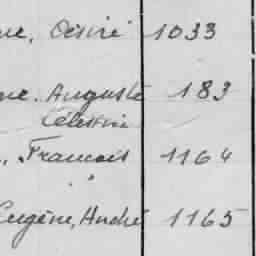 ne, Désiré 1033
ne. Auguste 183
Célestin
., François 1164
Eugène, André 1165